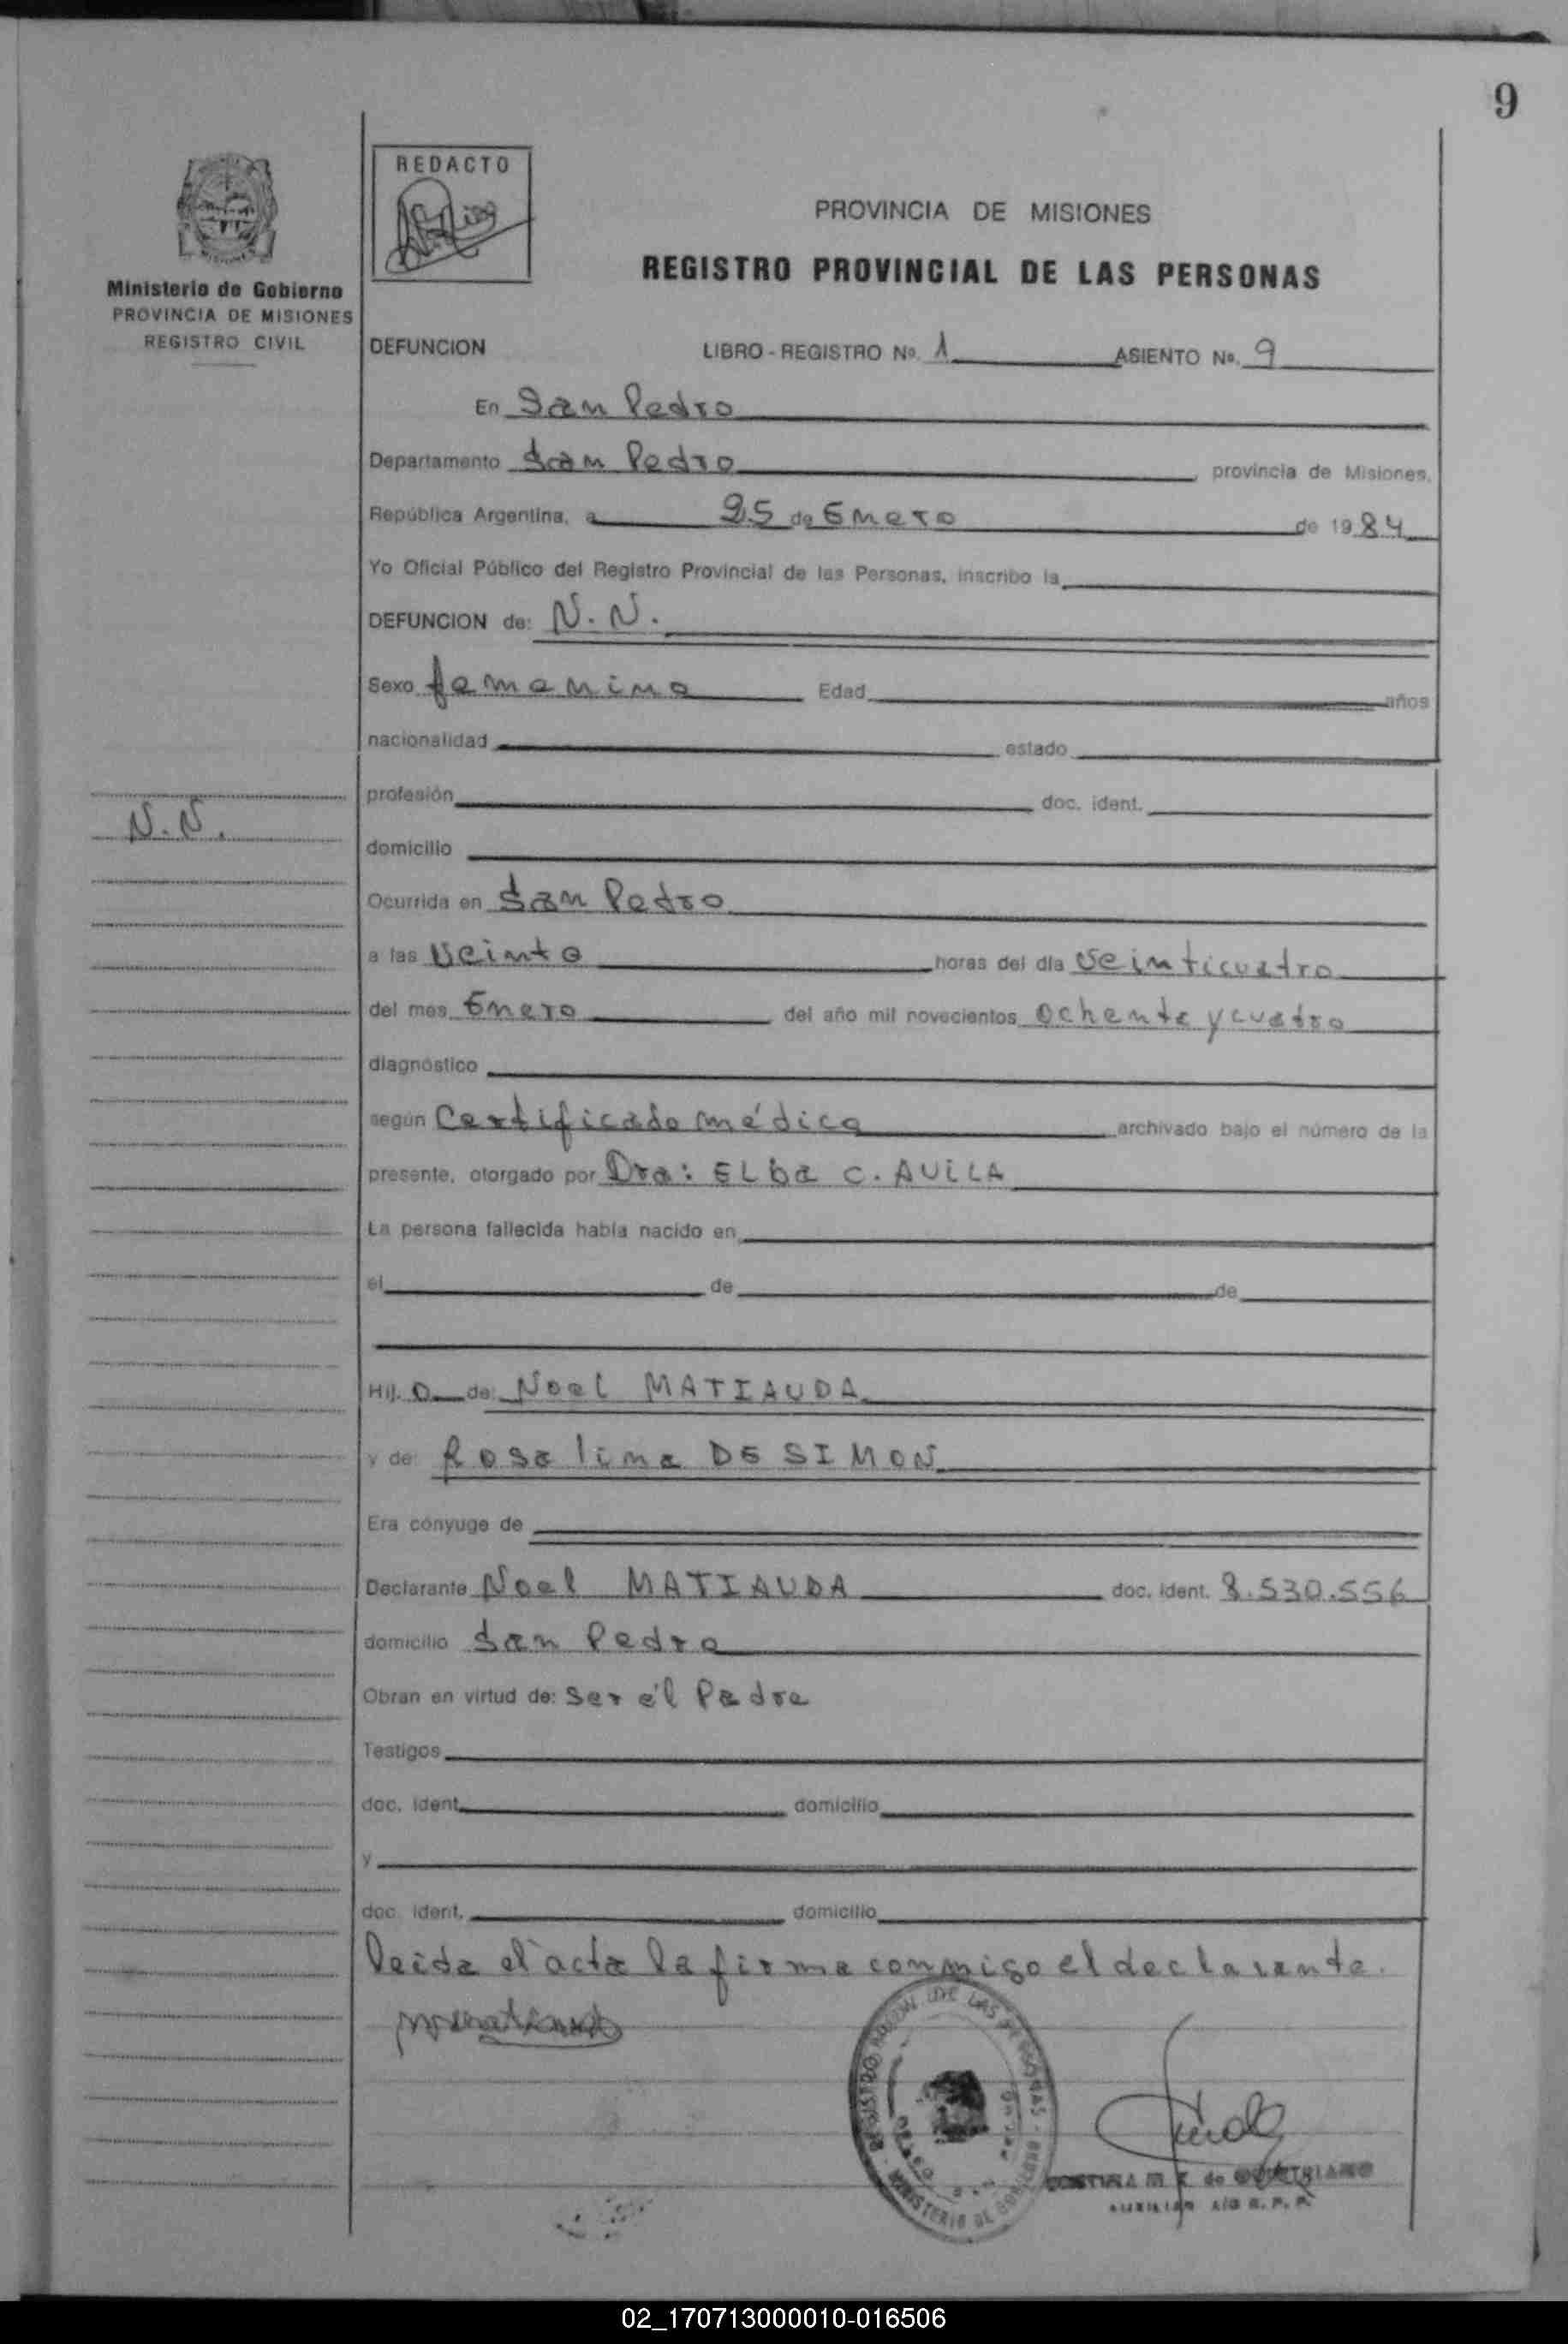 9
REDACTO
PROVINCIA DE MISIONES
REGISTRO PROVINCIAL DE LAS PERSONAS
Ministerio de Gobierno
PROVINCIA DE MISIONES
REGISTRO CIVIL
DEFUNCION LIBRO - REGISTRO Nº. 1 ASIENTO Nº. 9
En San Pedro
Departamento San Pedro provincia de Misiones,
República Argentina, a 25 de Enero de 1984
Yo Oficial Público del Registro Provincial de las Personas, inscribo la
DEFUNCION de: N. N.
Sexo femenino Edad años
nacionalidad estado
profesión doc. ident.
N. N.
domicilio
Ocurrida en San Pedro
a las Veinte horas del día veinticuatro
del mes Enero del año mil novecientos ochenta y cuatro
diagnóstico
según Certificado médico archivado bajo el número de la
presente, otorgado por Dra: ELba C. AVILA
La persona fallecida había nacido en
el de de
Hij. o de: Noel MATIAUDA
y de: Rosa lima DE SIMON
Era cónyuge de
Declarante Noel MATIAUDA doc. ident. 8.530.556
domicilio San Pedro
Obran en virtud de: ser él Padre
Testigos
doc. ident. domicilio
y
doc. ident. domicilio
leida el acta la firma conmigo el declarante.
REGISTRO DE LAS PERSONAS - MINISTERIO DE GOBIERNO
AUXILIAR A/C R. P. P.
02_170713000010-016506